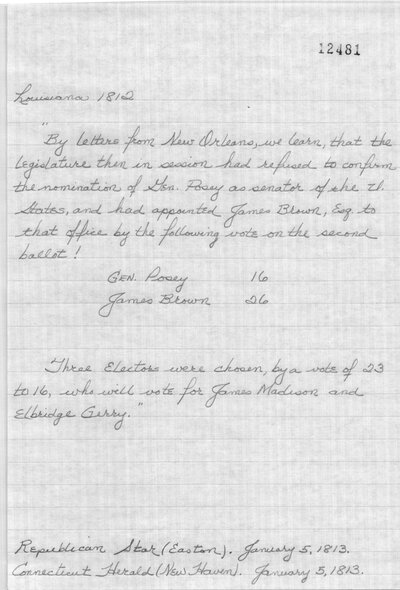 12481
Louisiana 1812
"By letters from New Orleans, we learn, that the
legislature then in session had refused to confirm
the nomination of Gen. Posey as senator of the U.
States, and had appointed James Brown, Esq. to
that office by the following vote on the second
ballot!
Gen. Posey 16
James Brown 26
Three Electors were chosen, by a vote of 23
to 16, who will vote for James Madison and
Elbridge Gerry."
Republican Star (Easton). January 5, 1813.
Connecticut Herald (New Haven). January 5, 1813.